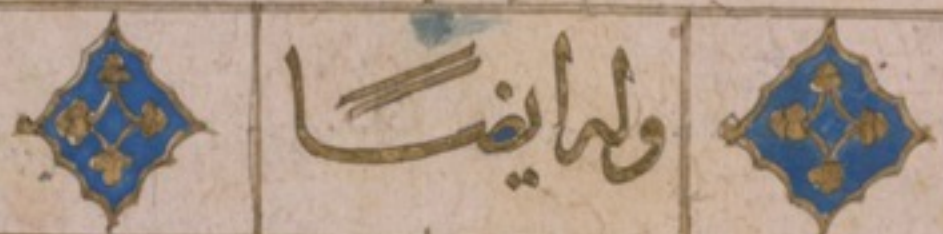 وله ايضاً